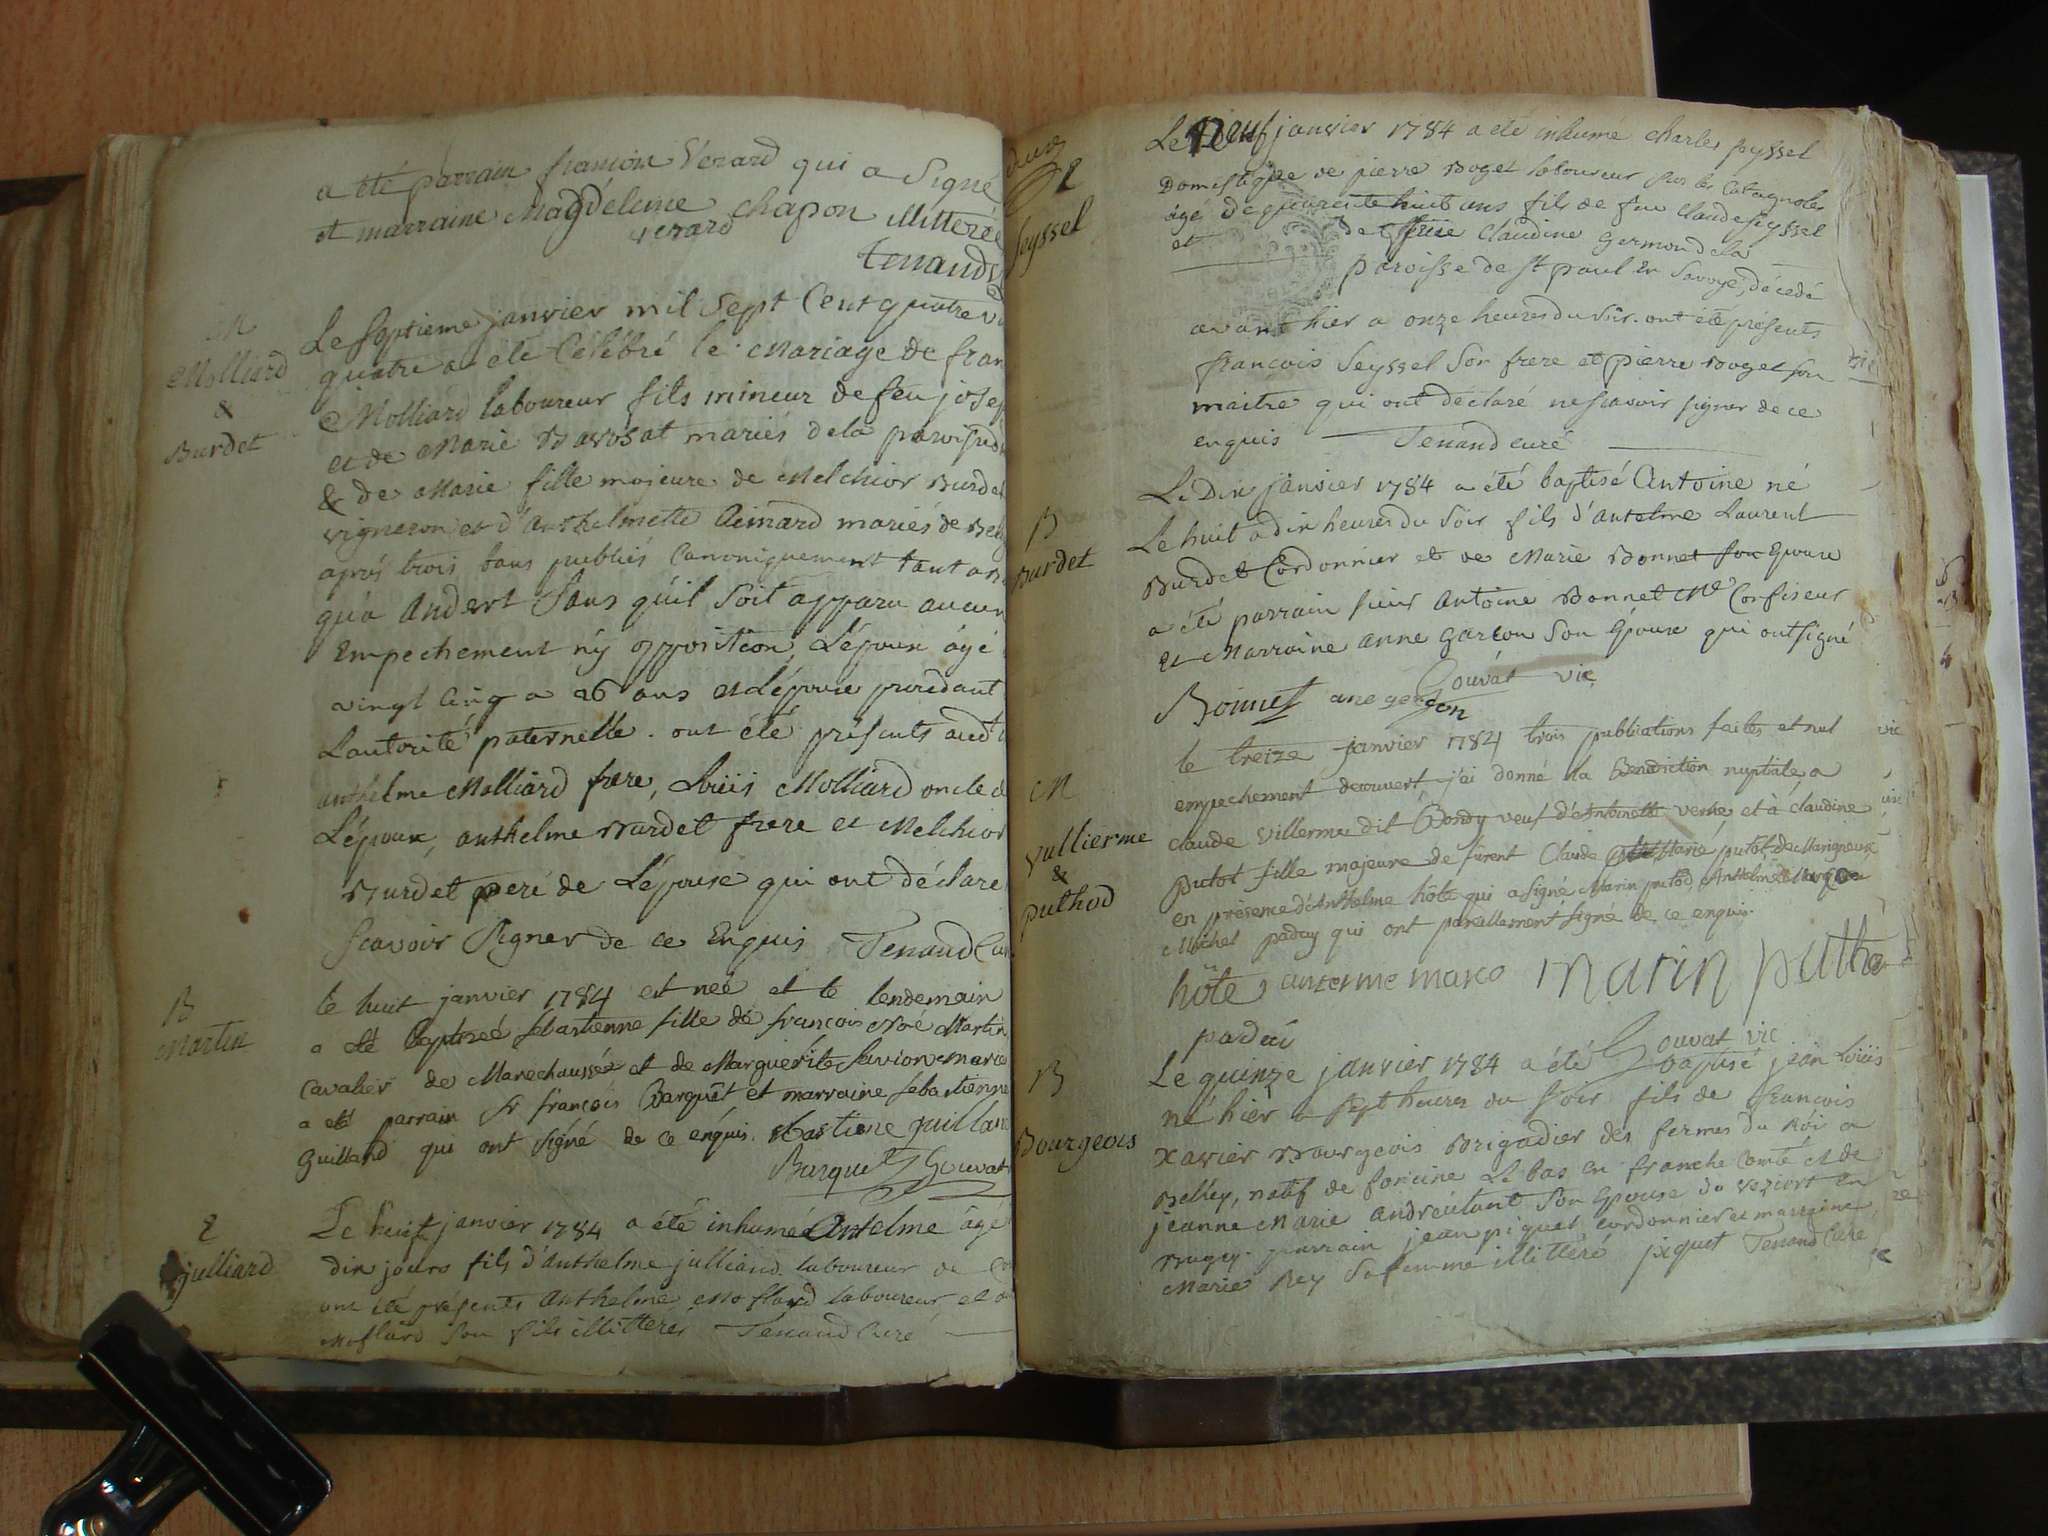 a été parrain françois Verard qui a Signé
et marraine Magdeleine Chapon illitterée
verard
tenand
M
Molliard
&
Burdet
Le Septieme janvier mil Sept Cent quatre
quatre a été Célébré le Mariage de fran
Molliard laboureur fils mineur de feu josep
et de Marie Bavosat mariés de la paroisse
& de Marie fille majeure de Melchior Burdet
vigneron et d'Anthelmette Aimard mariés de
aprés trois bans publiés Canoniquement tant a
qu'a Andert Sans qu'il Soit apparu aucun
Empechement ny opposition, L'époux âgé
vingt Cinq a 26 ans et l'épouse procedant
L'autorité paternelle . ont été présents
anthelme Molliard frere, Loüis Molliard oncle
L'époux, anthelme Burdet frere et Melchior
Burdet peré de L'épouse qui ont déclaré
scavoir Signer de ce Enquis Tenand
B
Martin
le huit janvier 1784 est neé et le lendemain
a eté baptiseé sebastienne fille de françois Martin
cavalier de Marechaussée et de Marguerite
a eté parrain Sr françois Barquet et marraine sebastienne
Guilland qui ont Signé de ce enquis. sbastiene guilland
Barquet Gouvat
S
julliard
Le neuf janvier 1784 a été inhumé Antelme âgé
dix jours fils d'Anthelme julliand laboureur de
ont été présents Anthelme laboureur et
son fils illitterés Tenand Curé
Seyssel
Le Neuf janvier 1784 a été inhumé Charles Seyssel
Domestique de pierre Roget laboureur sur les Catagnoles
âgé de quarente huit ans fils de feu Claude Seyssel
et de Claudine Germond de la
paroisse de St paul en Savoye, décedé
avant hier a onze heures du Soir. ont été présents
françois Seyssel Son frere et pierre Roget son
maitre qui ont déclaré ne scavoir signer de ce
enquis Tenand curé
B
Burdet
Le Dix janvier 1784 a été baptisé Antoine né
Le huit a dix heures du Soir fils d'antelme Laurent
Burdet Cordonnier et de Marie Bonnet son Epouse
a été parrain sieur Antoine Bonnet Me Confiseur
Et Marraine anne garcon Son Epouse qui ont signé
Gouvat vic
Bonnet ane gerson
M
Vullierme
&
puthod
le treize janvier 1784 trois publications faites et nul
empechement decouvert j'ai donné la Benediction nuptiale a
claude Villerme dit Bondy veuf d'Antoinette et à Claudine
putot fille majeure de furent Claude Marie putot de Marignieux
en présence d'Anthelme hôte qui a signé Marin putod, Anthelme
Michel paday qui ont pareillement signé de ce enquis.
hôte, antelme marco Marin putho
padei
Gouvat vic
B
Bourgeois
Le quinze janvier 1784 a été baptisé jean Loüis
né hier a Sept heures du Soir fils de françois
Xavier Bourgeois Brigadier des fermes du Roi a
Belley, natif de foncine Le bas en franche Comté et de
jeanne Marie Son Epouse du en
Bugey. parrain jean piquet cordonnier et marraine
Marie Rey Sa femme illittéré piquet Tenand Curé